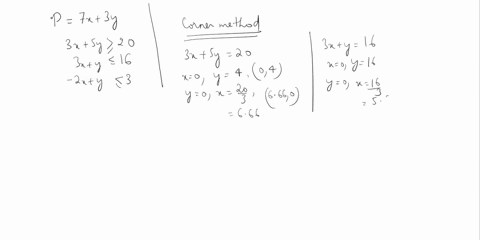 P = 7x+3y
3x+5y ≥ 20
3x+y ≤ 16
-2x+y ≤ 3
Corner method
3x+5y = 20
x=0, y = 4, (0,4)
y=0, x = 20/3, (6.66,0)
= 6.66
3x+y = 16
x=0, y=16
y=0, x=16/3
= 5.